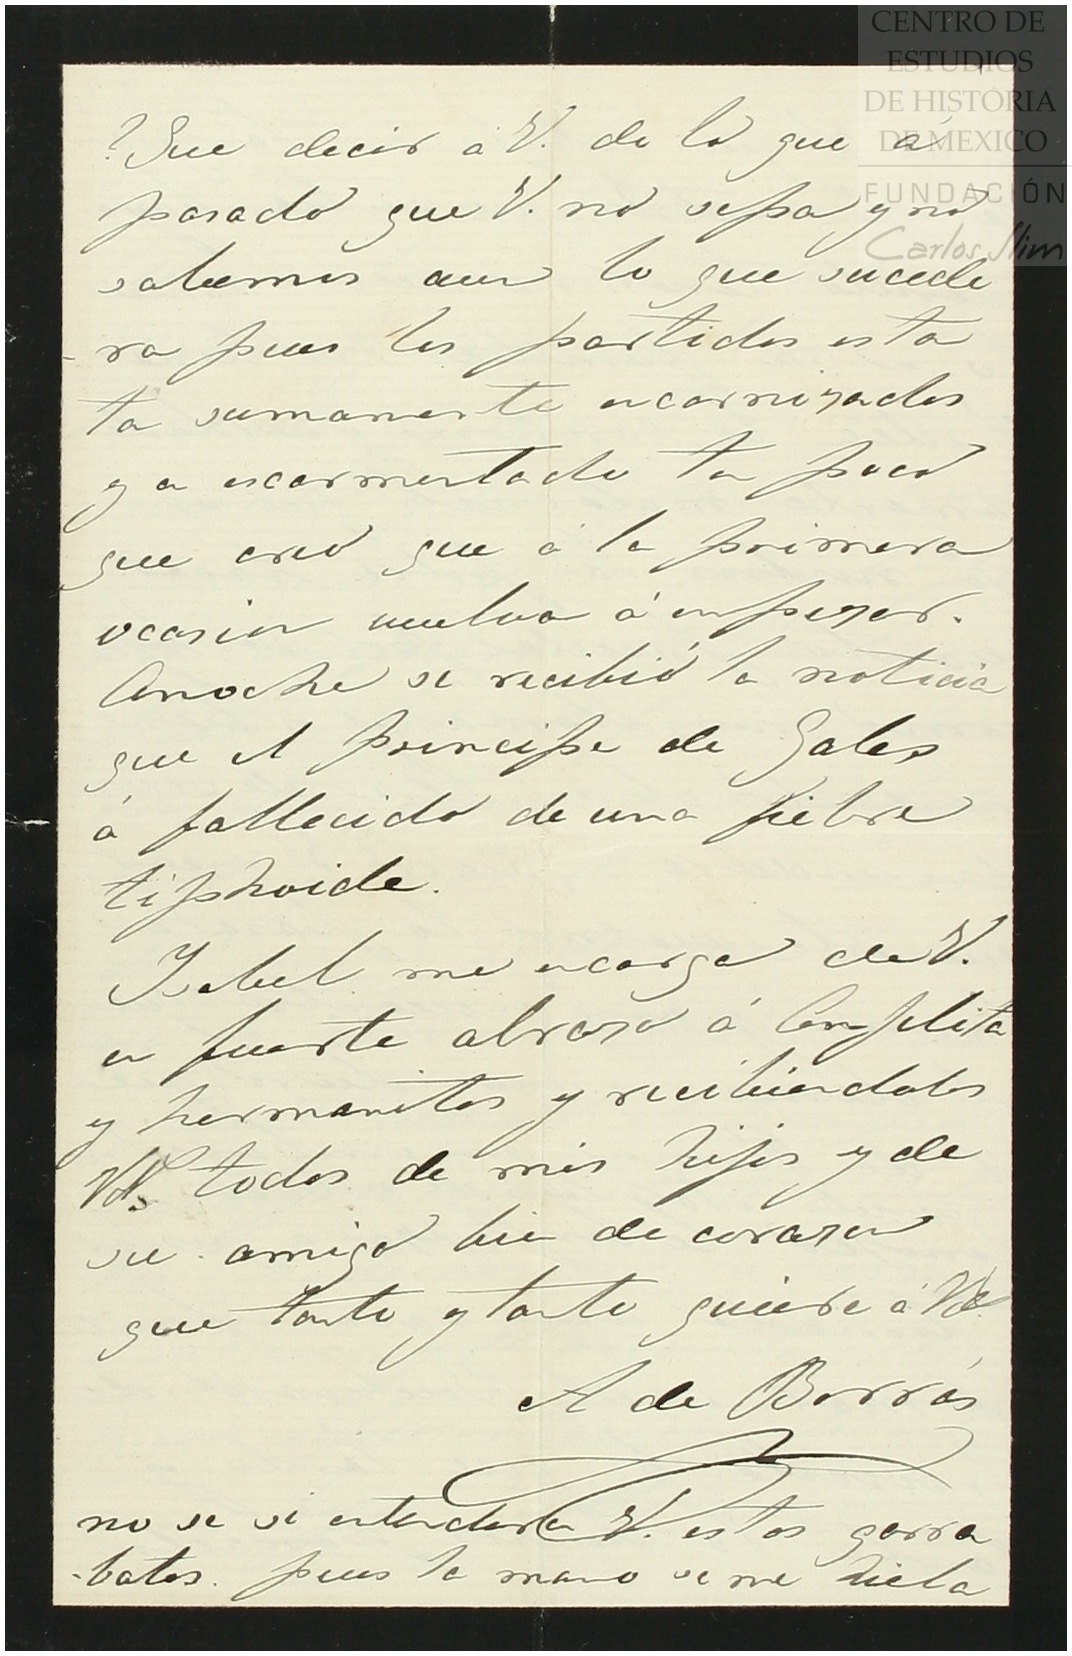 CENTRO DE
ESTUDIOS
DE HISTORIA
DE MEXICO
FUNDACIÓN
Carlos Slim
?Que decir á V. de lo que á
pasado que V. no sepa y no
sabemos aun lo que sucede
-ra pues los partidos esta
ta sumamente encarnizados
y a escarmentado ta poco
que creo que á la primera
ocasion vuelva á enpezar.
Anoche se recibió la noticia
que el principe de Gales
á fallecido de una fiebre
tiphoide.
Isabel me encarga de V.
un fuerte abrazo á Conchita
y hermanitos y recibiendolos
VVs todos de mis hijos y de
su amigo bien de corazon
que tanto y tanto quiere á Vds
A de Borrás
no se si entendera V. estos garra
-batos. pues la mano se me hiela